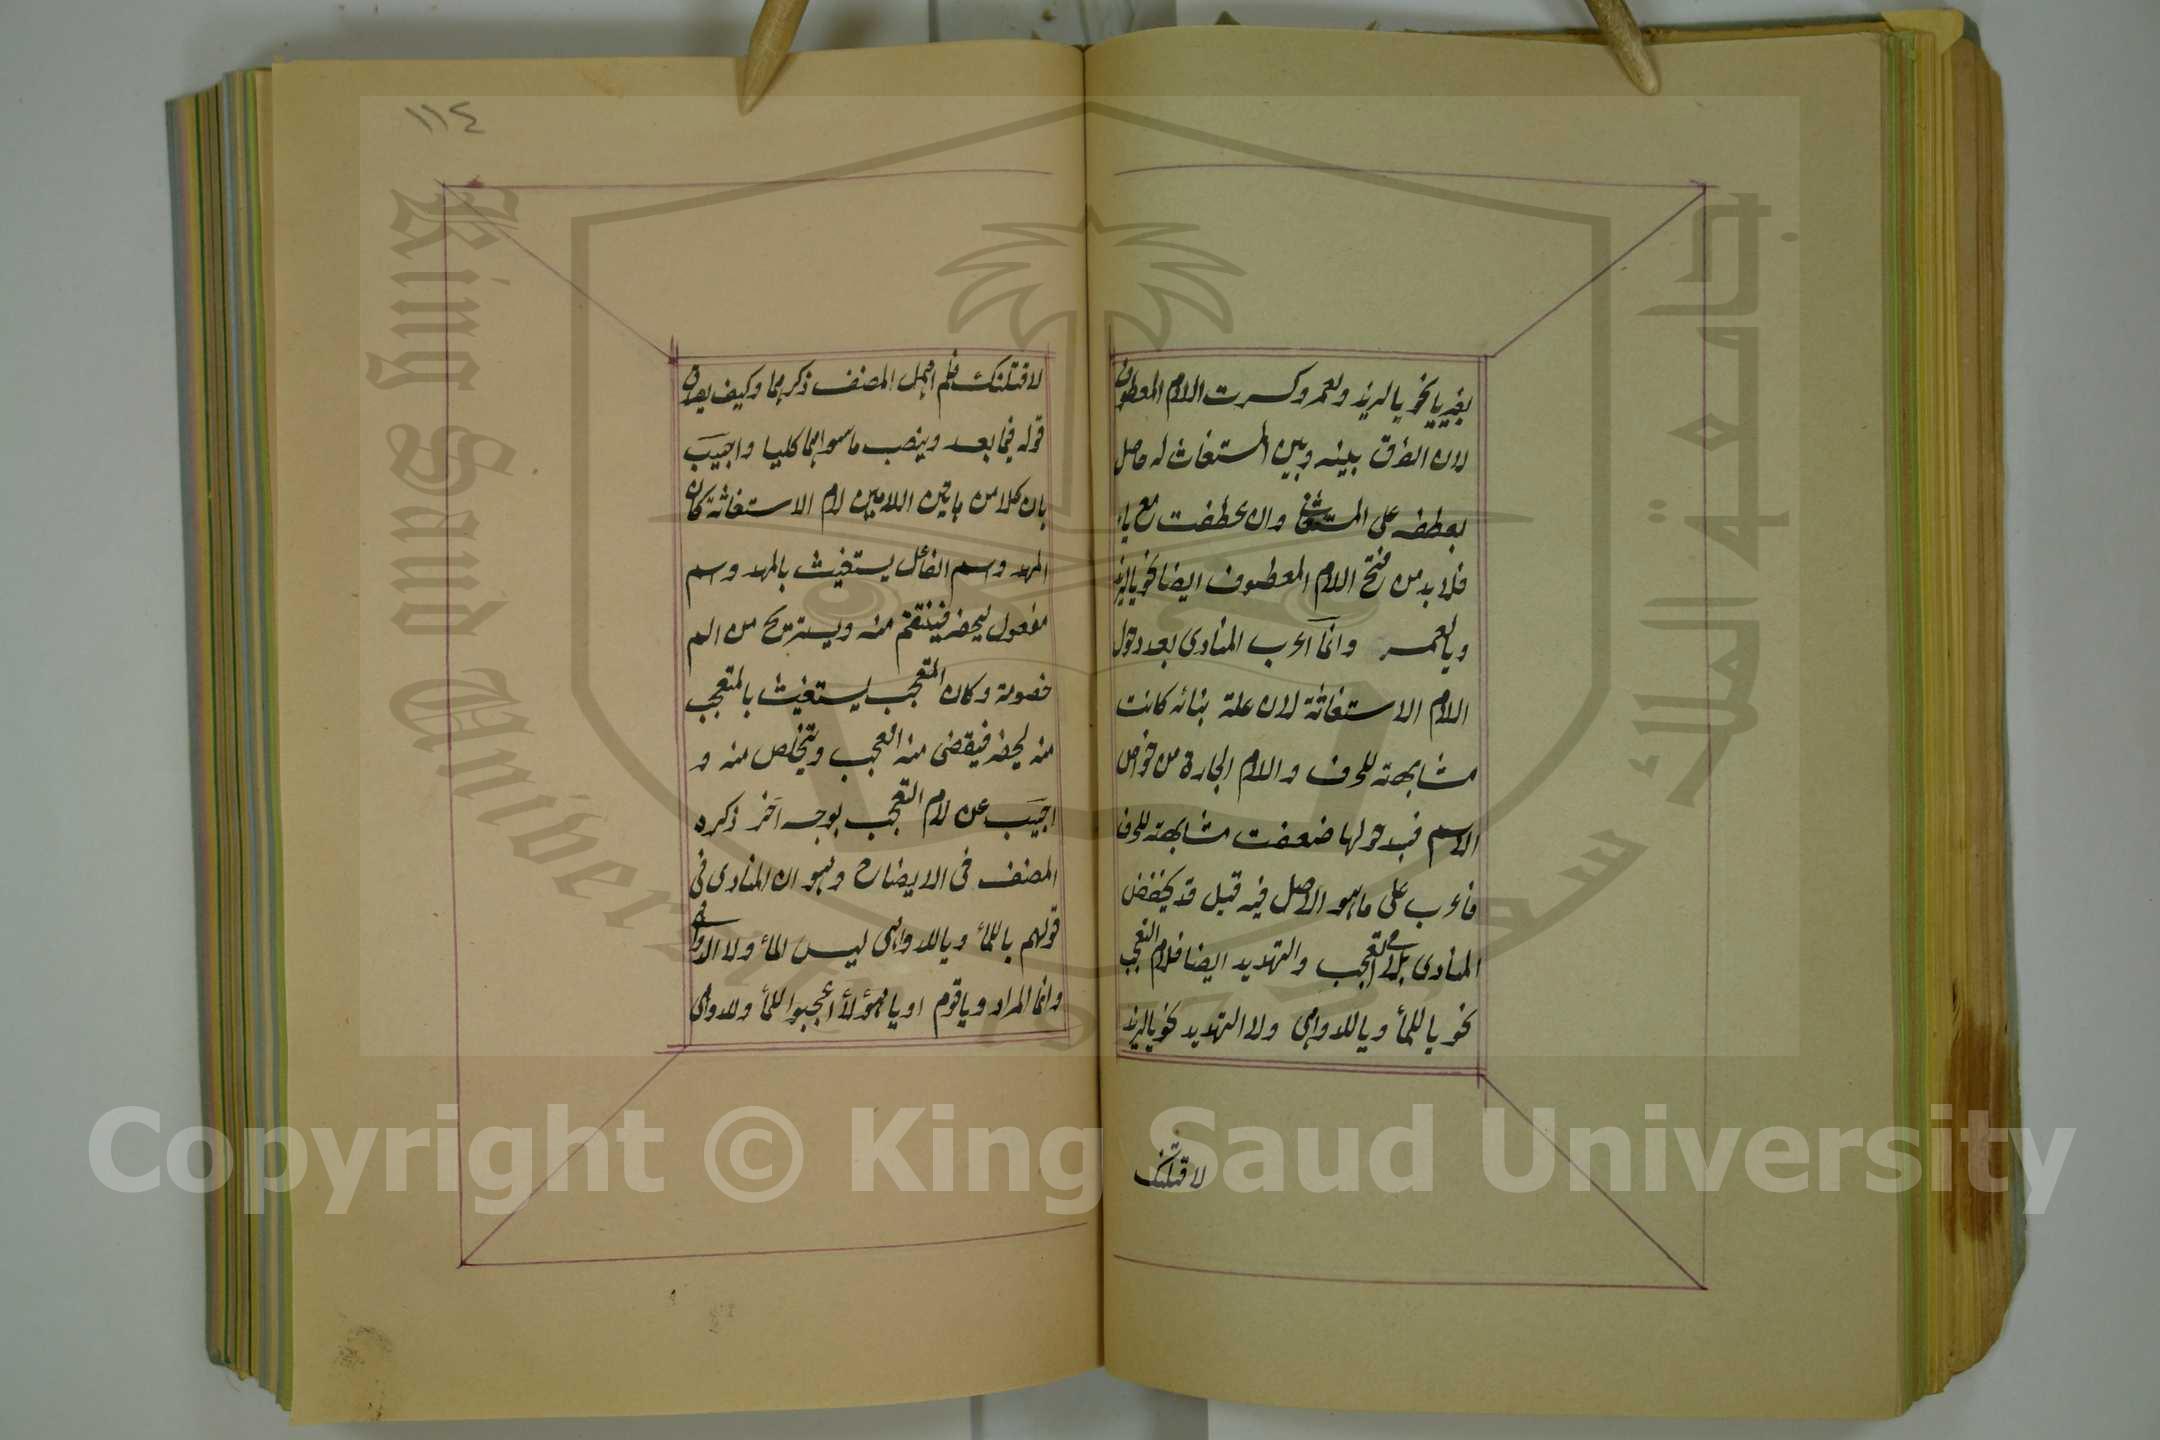 بغير يا نحو يا لزيد ولعمرو كسرت اللام المعطوف
لان الفرق بينه وبين المستغاث له حاصل
بعطفه على المستغاث وان عطفت مع يا
فلا بد من فتح اللام المعطوف ايضا نحو يا لزيد
ويا لعمرو وانما اعرب المنادى بعد دخول
اللام الاستغاثة لان علة بنائه كانت
مشابهته للحرف واللام الجارة من خواص
الاسم فبدخولها ضعفت مشابهته للحرف
فاعرب على ما هو الاصل فيه قيل قد يخفض
المنادى بلامى التعجب والتهديد ايضا فلام التعجب
نحو يا للماء ويا للدواهى ولا التهديد نحو يا لزيد
لاقتلنك
١١٤
لاقتلنك فلم اهمل المصنف ذكرهما وكيف يصدق
قوله فيما بعد وينصب ما سواهما كليا واجيب
بان كلا من هاتين اللامين لام الاستغاثة كان
المهدد اسم الفاعل يستغيث بالمهدد اسم
مفعول ليحضر فينتقم منه ويستريح من الم
خصومة وكان المتعجب يستغيث بالمتعجب
منه ليحضر فيقضى منه العجب ويتخلص منه و
اجيب عن لام التعجب بوجه آخر ذكره
المصنف فى الايضاح وهو ان المنادى فى
قولهم يا للماء ويا للدواهى ليس الماء ولا الدواهى
وانما المراد ويا قوم او يا هؤلاء اعجبوا للماء وللدواهى
Copyright © King Saud University
King Saud University
جامعة الملك سعود